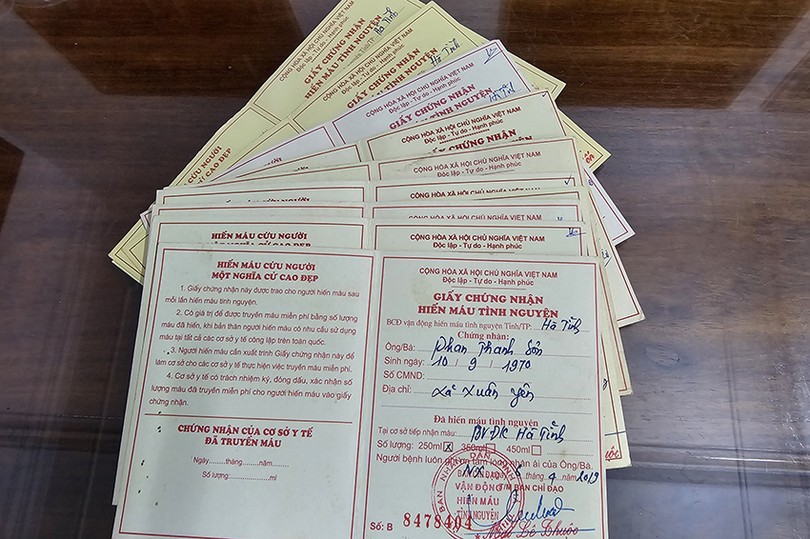 CỘNG HÒA XÃ HỘI CHỦ NGHĨA VIỆT NAM
Độc lập - Tự do - Hạnh phúc
GIẤY CHỨNG NHẬN
HIẾN MÁU TÌNH NGUYỆN
Hà Tĩnh
CỘNG HÒA XÃ HỘI CHỦ NGHĨA VIỆT NAM
Độc lập - Tự do - Hạnh phúc
GIẤY CHỨNG NHẬN
MÁU TÌNH NGUYỆN
Hà Tĩnh
CỘNG HÒA XÃ HỘI CHỦ NGHĨA VIỆT NAM
Độc lập - Tự do - Hạnh phúc
GIẤY CHỨNG NHẬN
MÁU TÌNH NGUYỆN
CỘNG HÒA XÃ HỘI CHỦ NGHĨA VIỆT NAM
Độc lập - Tự do - Hạnh phúc
GIẤY CHỨNG NHẬN
CỨU NGƯỜI
CAO ĐẸP
CỘNG HÒA XÃ HỘI CHỦ NGHĨA VIỆT NAM
Độc lập - Tự do - Hạnh phúc
CỘNG HÒA XÃ HỘI CHỦ NGHĨA VIỆT NAM
CỘNG HÒA XÃ HỘI CHỦ NGHĨA VIỆT NAM
HIẾN MÁU CỨU NGƯỜI
NGHĨA CỬ CAO ĐẸP
CỘNG HÒA XÃ HỘI CHỦ NGHĨA VIỆT NAM
Độc lập - Tự do - Hạnh phúc
HIẾN MÁU CỨU NGƯỜI
MỘT NGHĨA CỬ CAO ĐẸP
1. Giấy chứng nhận này được trao cho người hiến máu sau
mỗi lần hiến máu tình nguyện.
2. Có giá trị để được truyền máu miễn phí bằng số lượng
máu đã hiến, khi bản thân người hiến máu có nhu cầu sử dụng
máu tại tất cả các cơ sở y tế công lập trên toàn quốc.
3. Người hiến máu cần xuất trình Giấy chứng nhận này để
làm cơ sở cho các cơ sở y tế thực hiện việc truyền máu miễn phí.
4. Cơ sở y tế có trách nhiệm ký, đóng dấu, xác nhận số
lượng máu đã truyền miễn phí cho người hiến máu vào giấy
chứng nhận.
CHỨNG NHẬN CỦA CƠ SỞ Y TẾ
ĐÃ TRUYỀN MÁU
Ngày......tháng......năm......
Số lượng:......ml
CỘNG HÒA XÃ HỘI CHỦ NGHĨA VIỆT NAM
Độc lập - Tự do - Hạnh phúc
GIẤY CHỨNG NHẬN
HIẾN MÁU TÌNH NGUYỆN
BCĐ vận động hiến máu tình nguyện Tỉnh/TP: Hà Tĩnh
Chứng nhận:
Ông/Bà: Phan Thanh Sơn
Sinh ngày: 10 / 9 / 1970
Số CMND:
Địa chỉ: Xã Xuân Yên
Đã hiến máu tình nguyện
Tại cơ sở tiếp nhận máu: BVĐK Hà Tĩnh
Số lượng: 250ml X 350ml 450ml
Người bệnh luôn nhân ái của Ông/Bà.
tháng 4 năm 2019
T/M BAN CHỈ ĐẠO
VẬN ĐỘNG
HIẾN MÁU
TÌNH NGUYỆN
Số: B 8478404